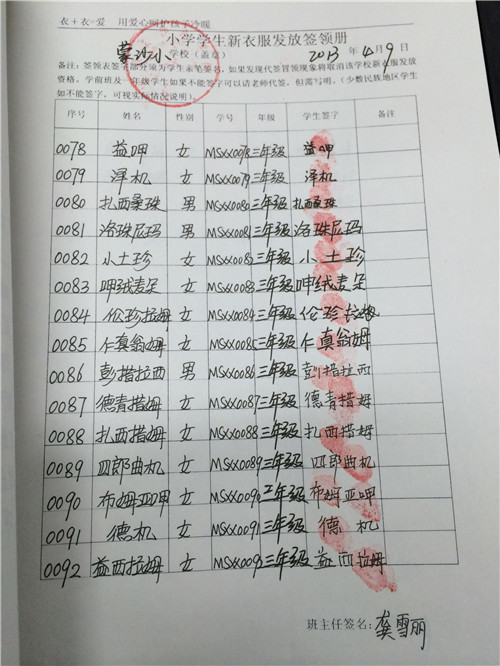 衣+衣=爱 用爱心呵护孩子冷暖
小学学生新衣服发放签领册
蒙沙小 学校（盖章） 2013年4月9日
备注：签领表签字部分须为学生亲笔签名，如果发现代签冒领现象将取消该学校新衣服发放
资格。学前班及一年级学生如果不能签字可以请老师代签，但需写明。（少数民族地区学生
如不能签字，可视实际情况说明）。
序号 姓名 性别 学号 年级 学生签字 备注
0078 益呷 女 MSXX0078 三年级 益呷
0079 泽机 女 MSXX0079 三年级 泽机
0080 扎西桑珠 男 MSXX0080 三年级 扎西桑珠
0081 洛珠尼玛 男 MSXX0081 三年级 洛珠尼玛
0082 小土珍 女 MSXX0082 三年级 小土珍
0083 呷绒麦足 女 MSXX0083 三年级 呷绒麦足
0084 伦珍拉姆 女 MSXX0084 三年级 伦珍拉姆
0085 仁真翁姆 女 MSXX0085 三年级 仁真翁姆
0086 彭措拉西 男 MSXX0086 三年级 彭措拉西
0087 德青措姆 女 MSXX0087 三年级 德青措姆
0088 扎西措姆 女 MSXX0088 三年级 扎西措姆
0089 四郎曲机 女 MSXX0089 三年级 四郎曲机
0090 布姆亚呷 女 MSXX0090 三年级 布姆亚呷
0091 德机 女 MSXX0091 三年级 德机
0092 益西拉姆 女 MSXX0092 三年级 益西拉姆
班主任签名：龚雪丽